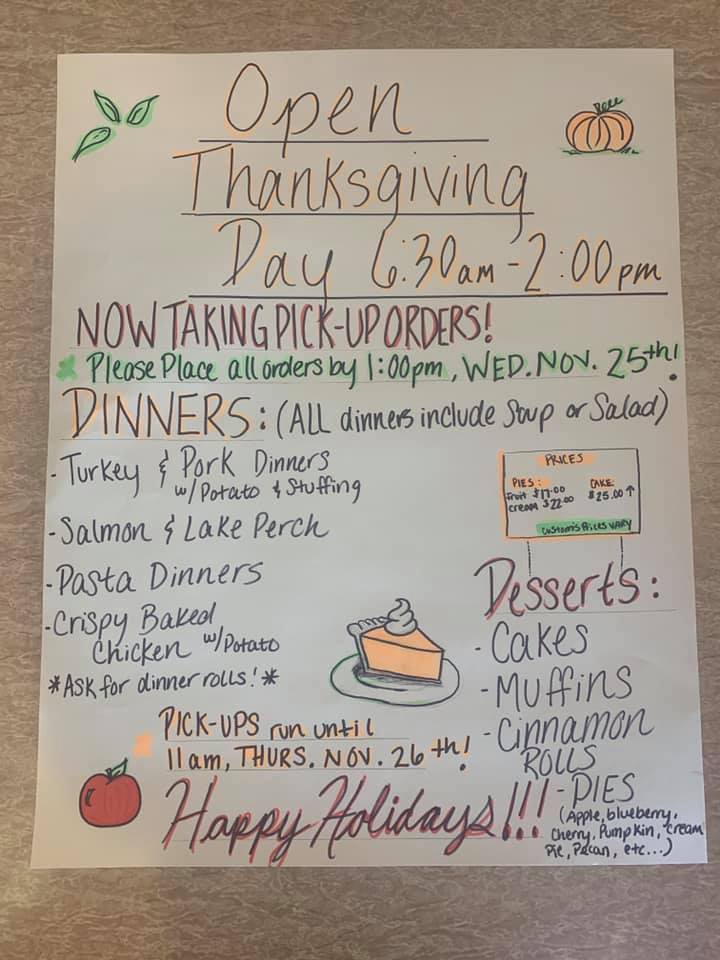 Open
Thanksgiving
Day 6:30am-2:00pm
NOW TAKING PICK-UP ORDERS!
Please Place all orders by 1:00pm, WED. NOV. 25th!
DINNERS: (ALL dinners include Soup or Salad)
- Turkey & Pork Dinners
w/Potato & Stuffing
- Salmon & Lake Perch
- Pasta Dinners
- Crispy Baked
Chicken w/Potato
*Ask for dinner rolls!*
PICK-UPS run until
11am, THURS. NOV. 26th!
PRICES
PIES: CAKE:
fruit $17.00 $25.00↑
cream $22.00
Custom's Prices VARY
Desserts:
- Cakes
- Muffins
- Cinnamon
ROLLS
- PIES
(Apple, blueberry,
Cherry, Pumpkin, cream
Pie, Pecan, etc...)
Happy Holidays!!!